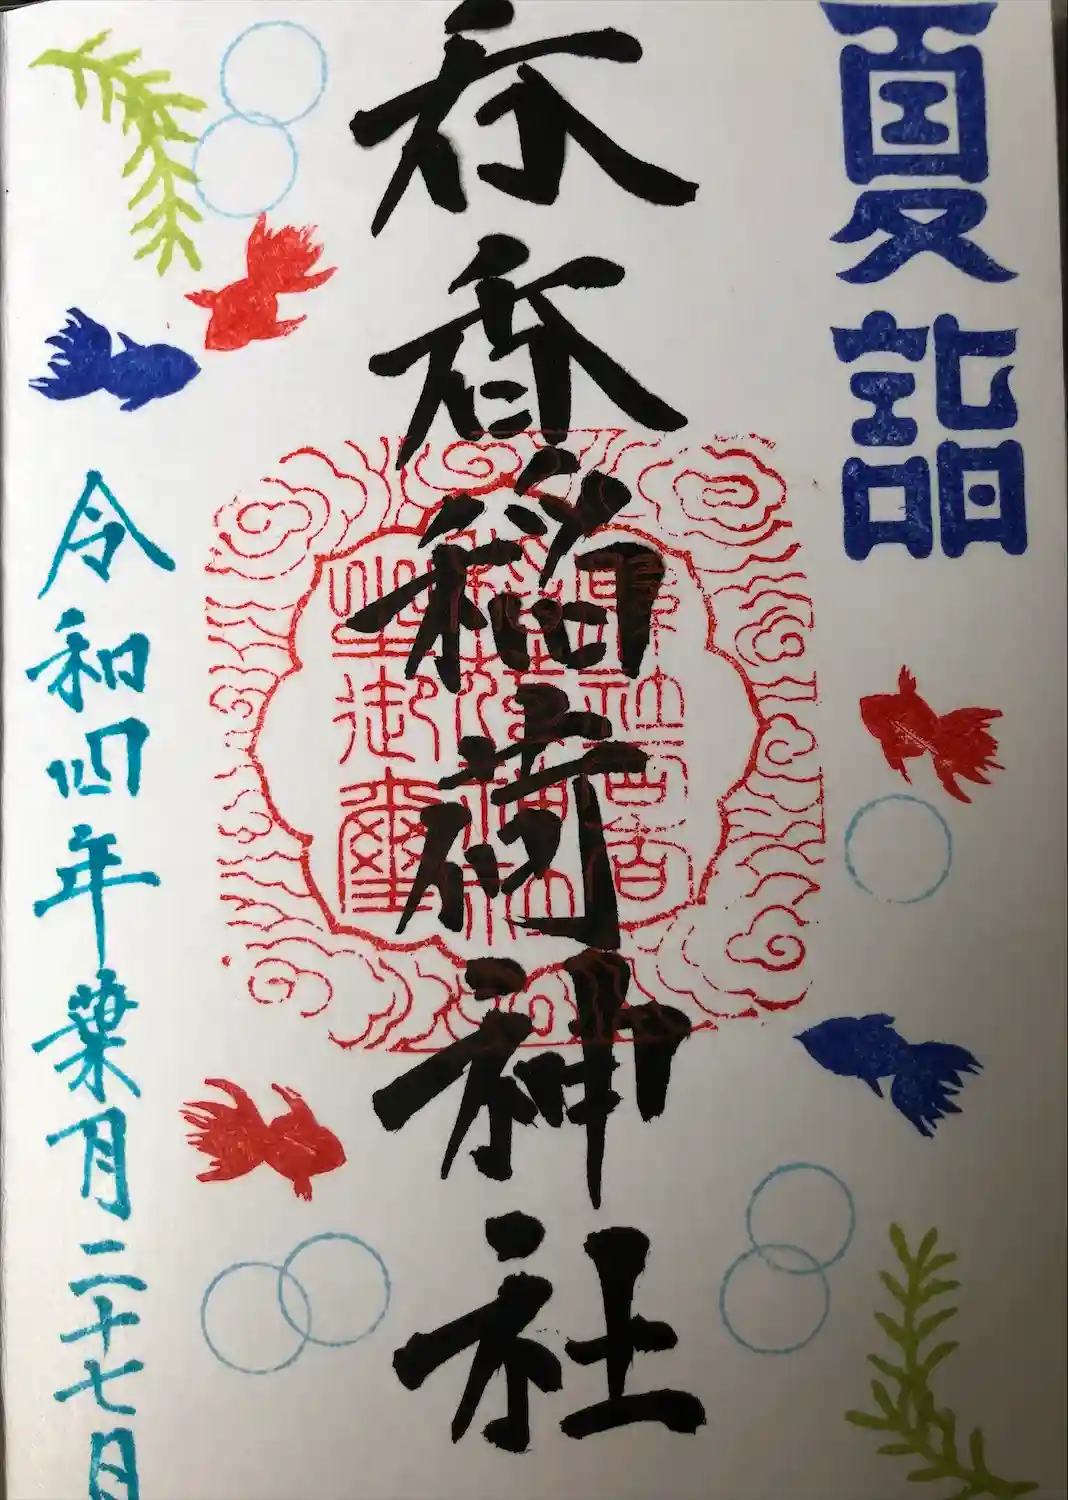 夏詣
呑香稲荷神社
令和四年葉月二十七日